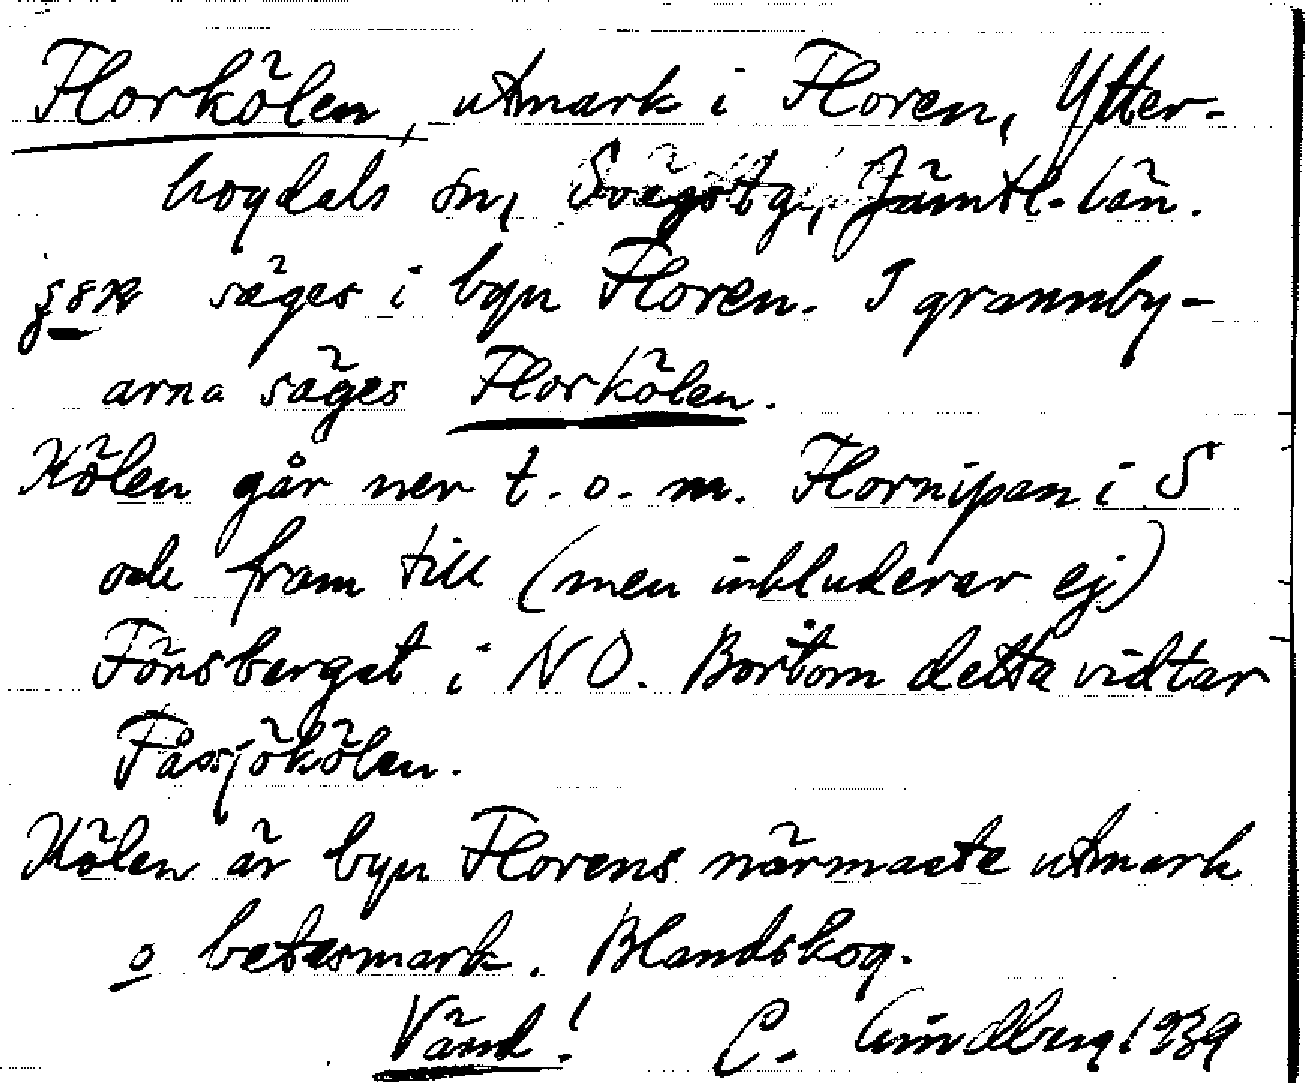 Florkölen, utmark i Floren, Ytter-
hogdals sn, Jämtl. län.
säges i byn Floren. I grannby-
arna säges Florkölen.
Kölen går ner t. o. m. Flornipan i S
och fram till (men inkluderar ej)
Fönsberget i NO. Bortom detta vidtar
Fåssjökölen.
Kölen är byn Florens närmaste utmark
o betesmark. Blandskog.
Vänd! C. Lindberg 1939